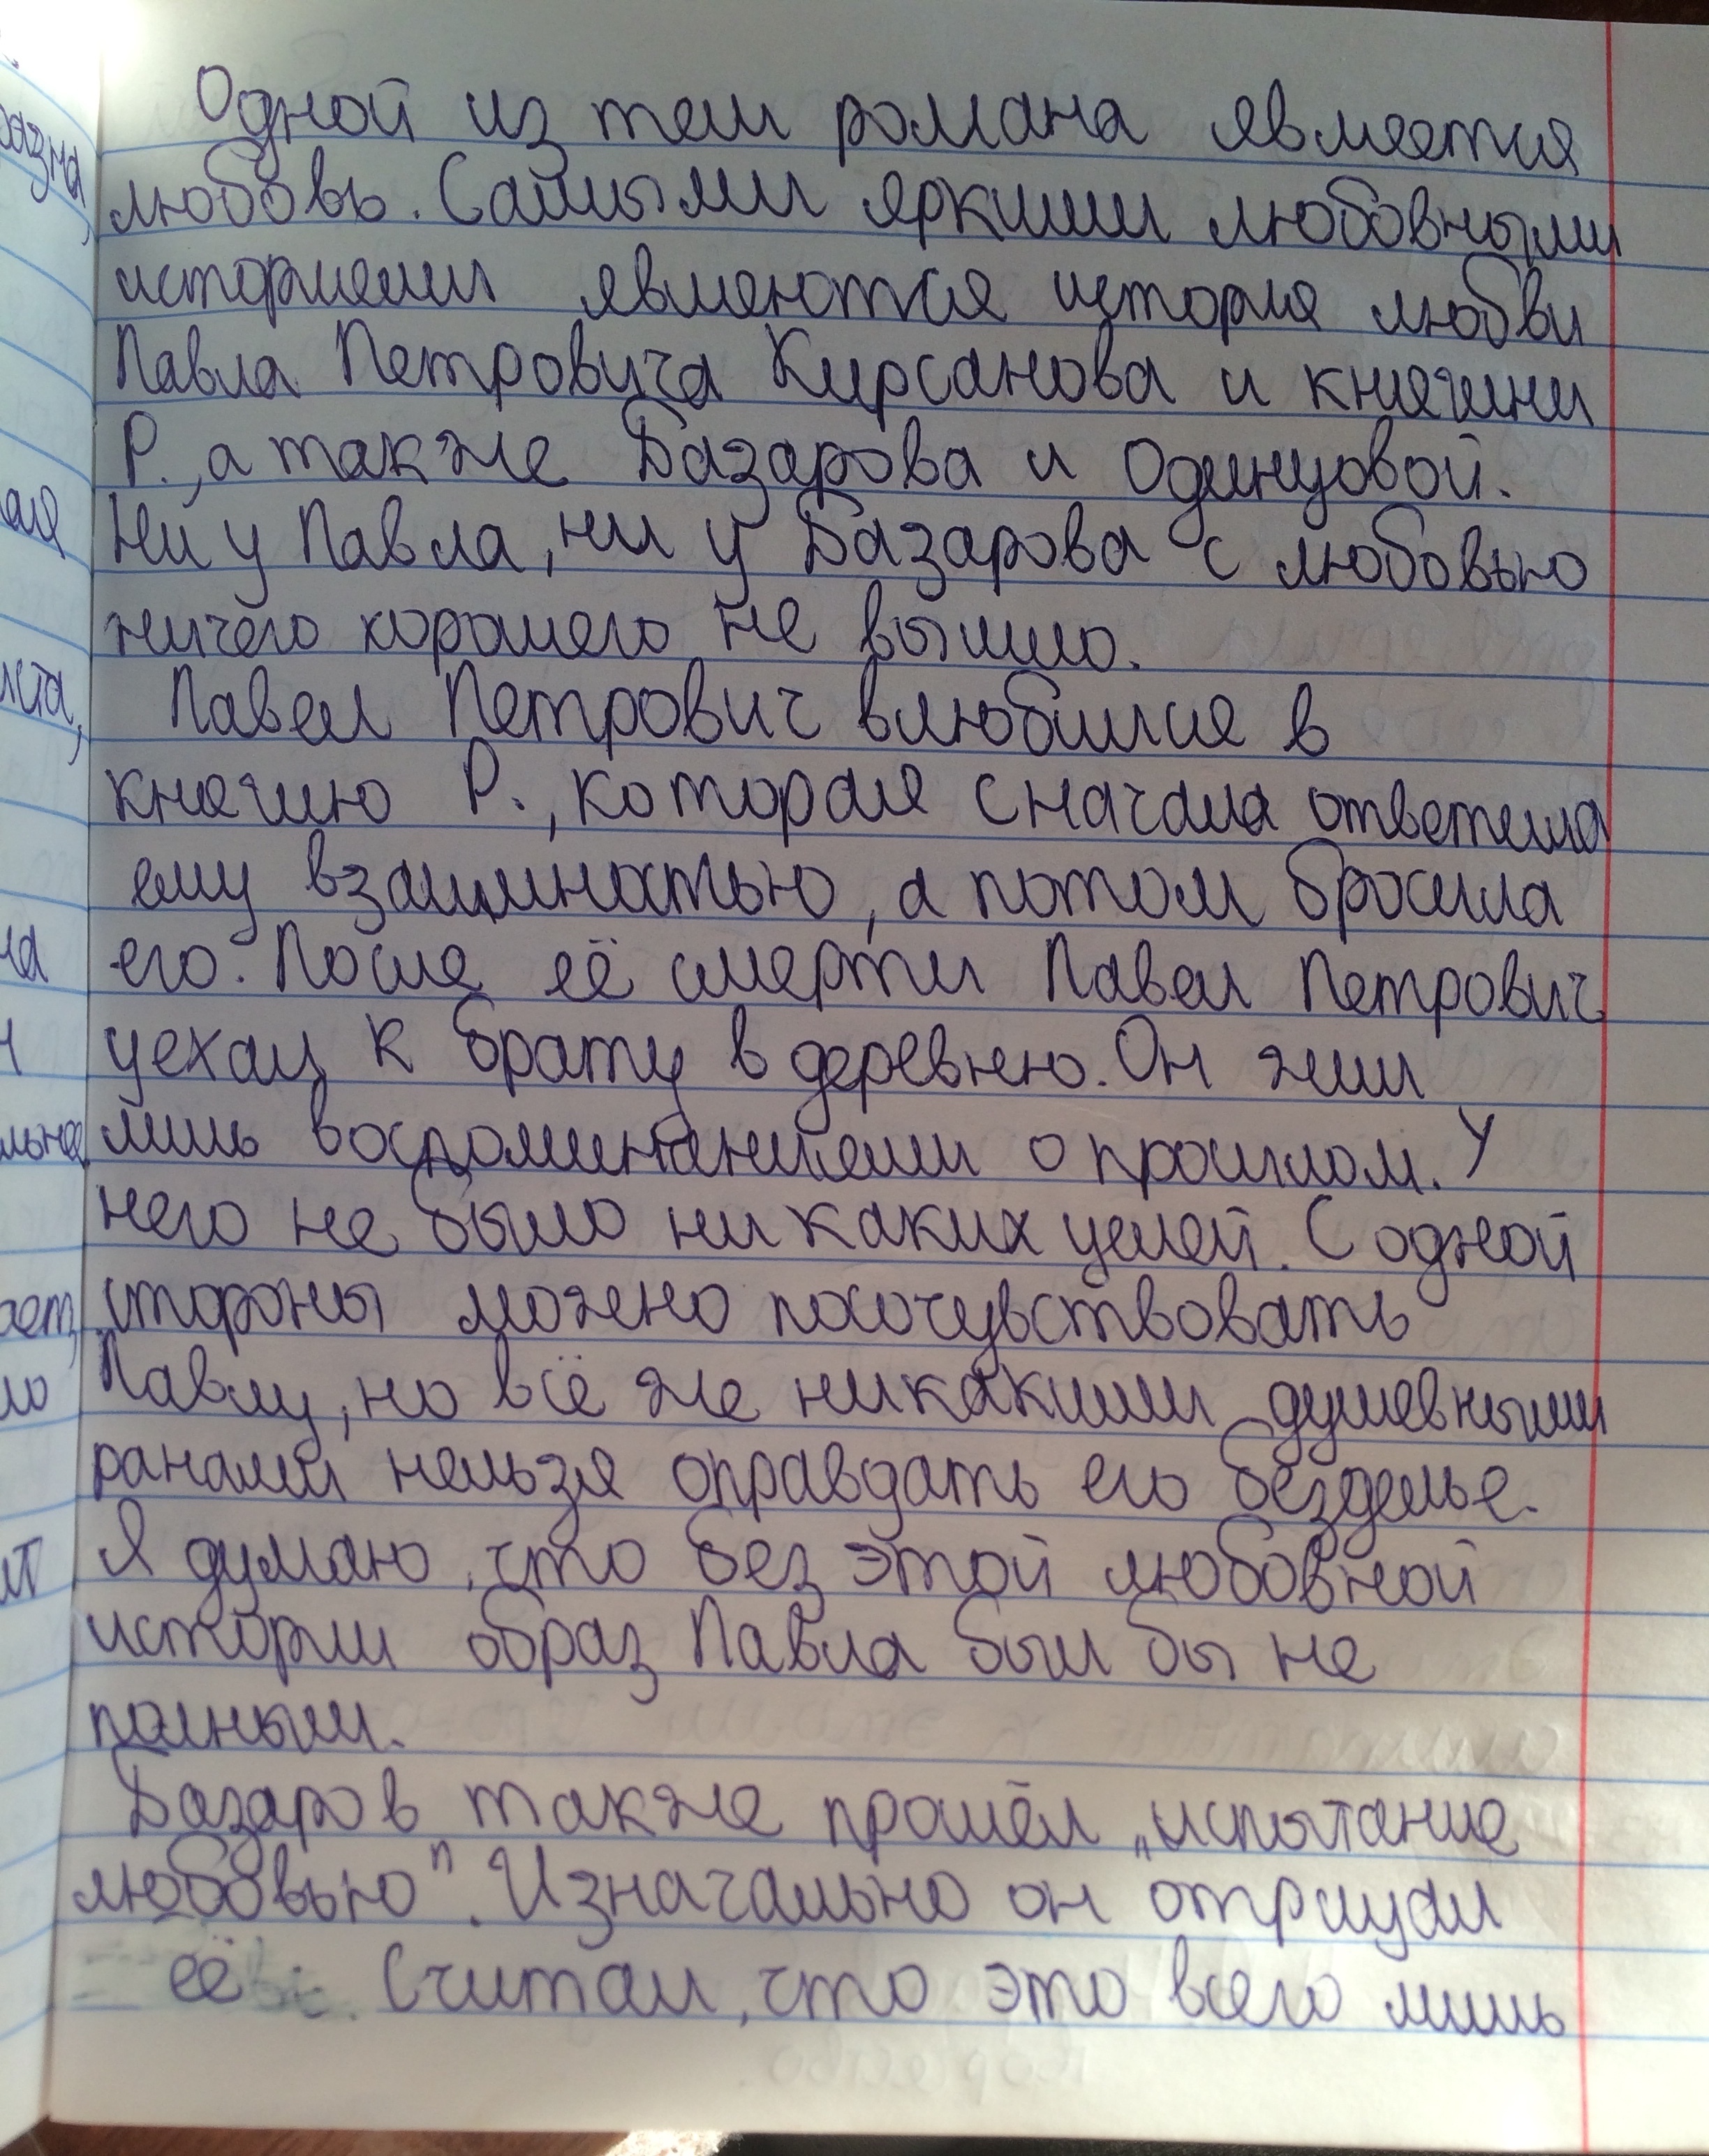 Одной из тем романа является
любовь. Самыми яркими любовными
историями являются история любви
Павла Петровича Кирсанова и княгини
Р., а также Базарова и Одинцовой.
Ни у Павла, ни у Базарова с любовью
ничего хорошего не вышло.
Павел Петрович влюбился в
княгиню Р., которая сначала ответила
ему взаимностью, а потом бросила
его. После её смерти Павел Петрович
уехал к брату в деревню. Он жил
лишь воспоминаниями о прошлом. У
него не было никаких целей. С одной
стороны можно посочувствовать
Павлу, но всё же никакими душевными
ранами нельзя оправдать его безделье.
Я думаю, что без этой любовной
истории образ Павла был бы не
полным.
Базаров также прошёл „испытание
любовью". Изначально он отрицал
её. Считал, что это всего лишь